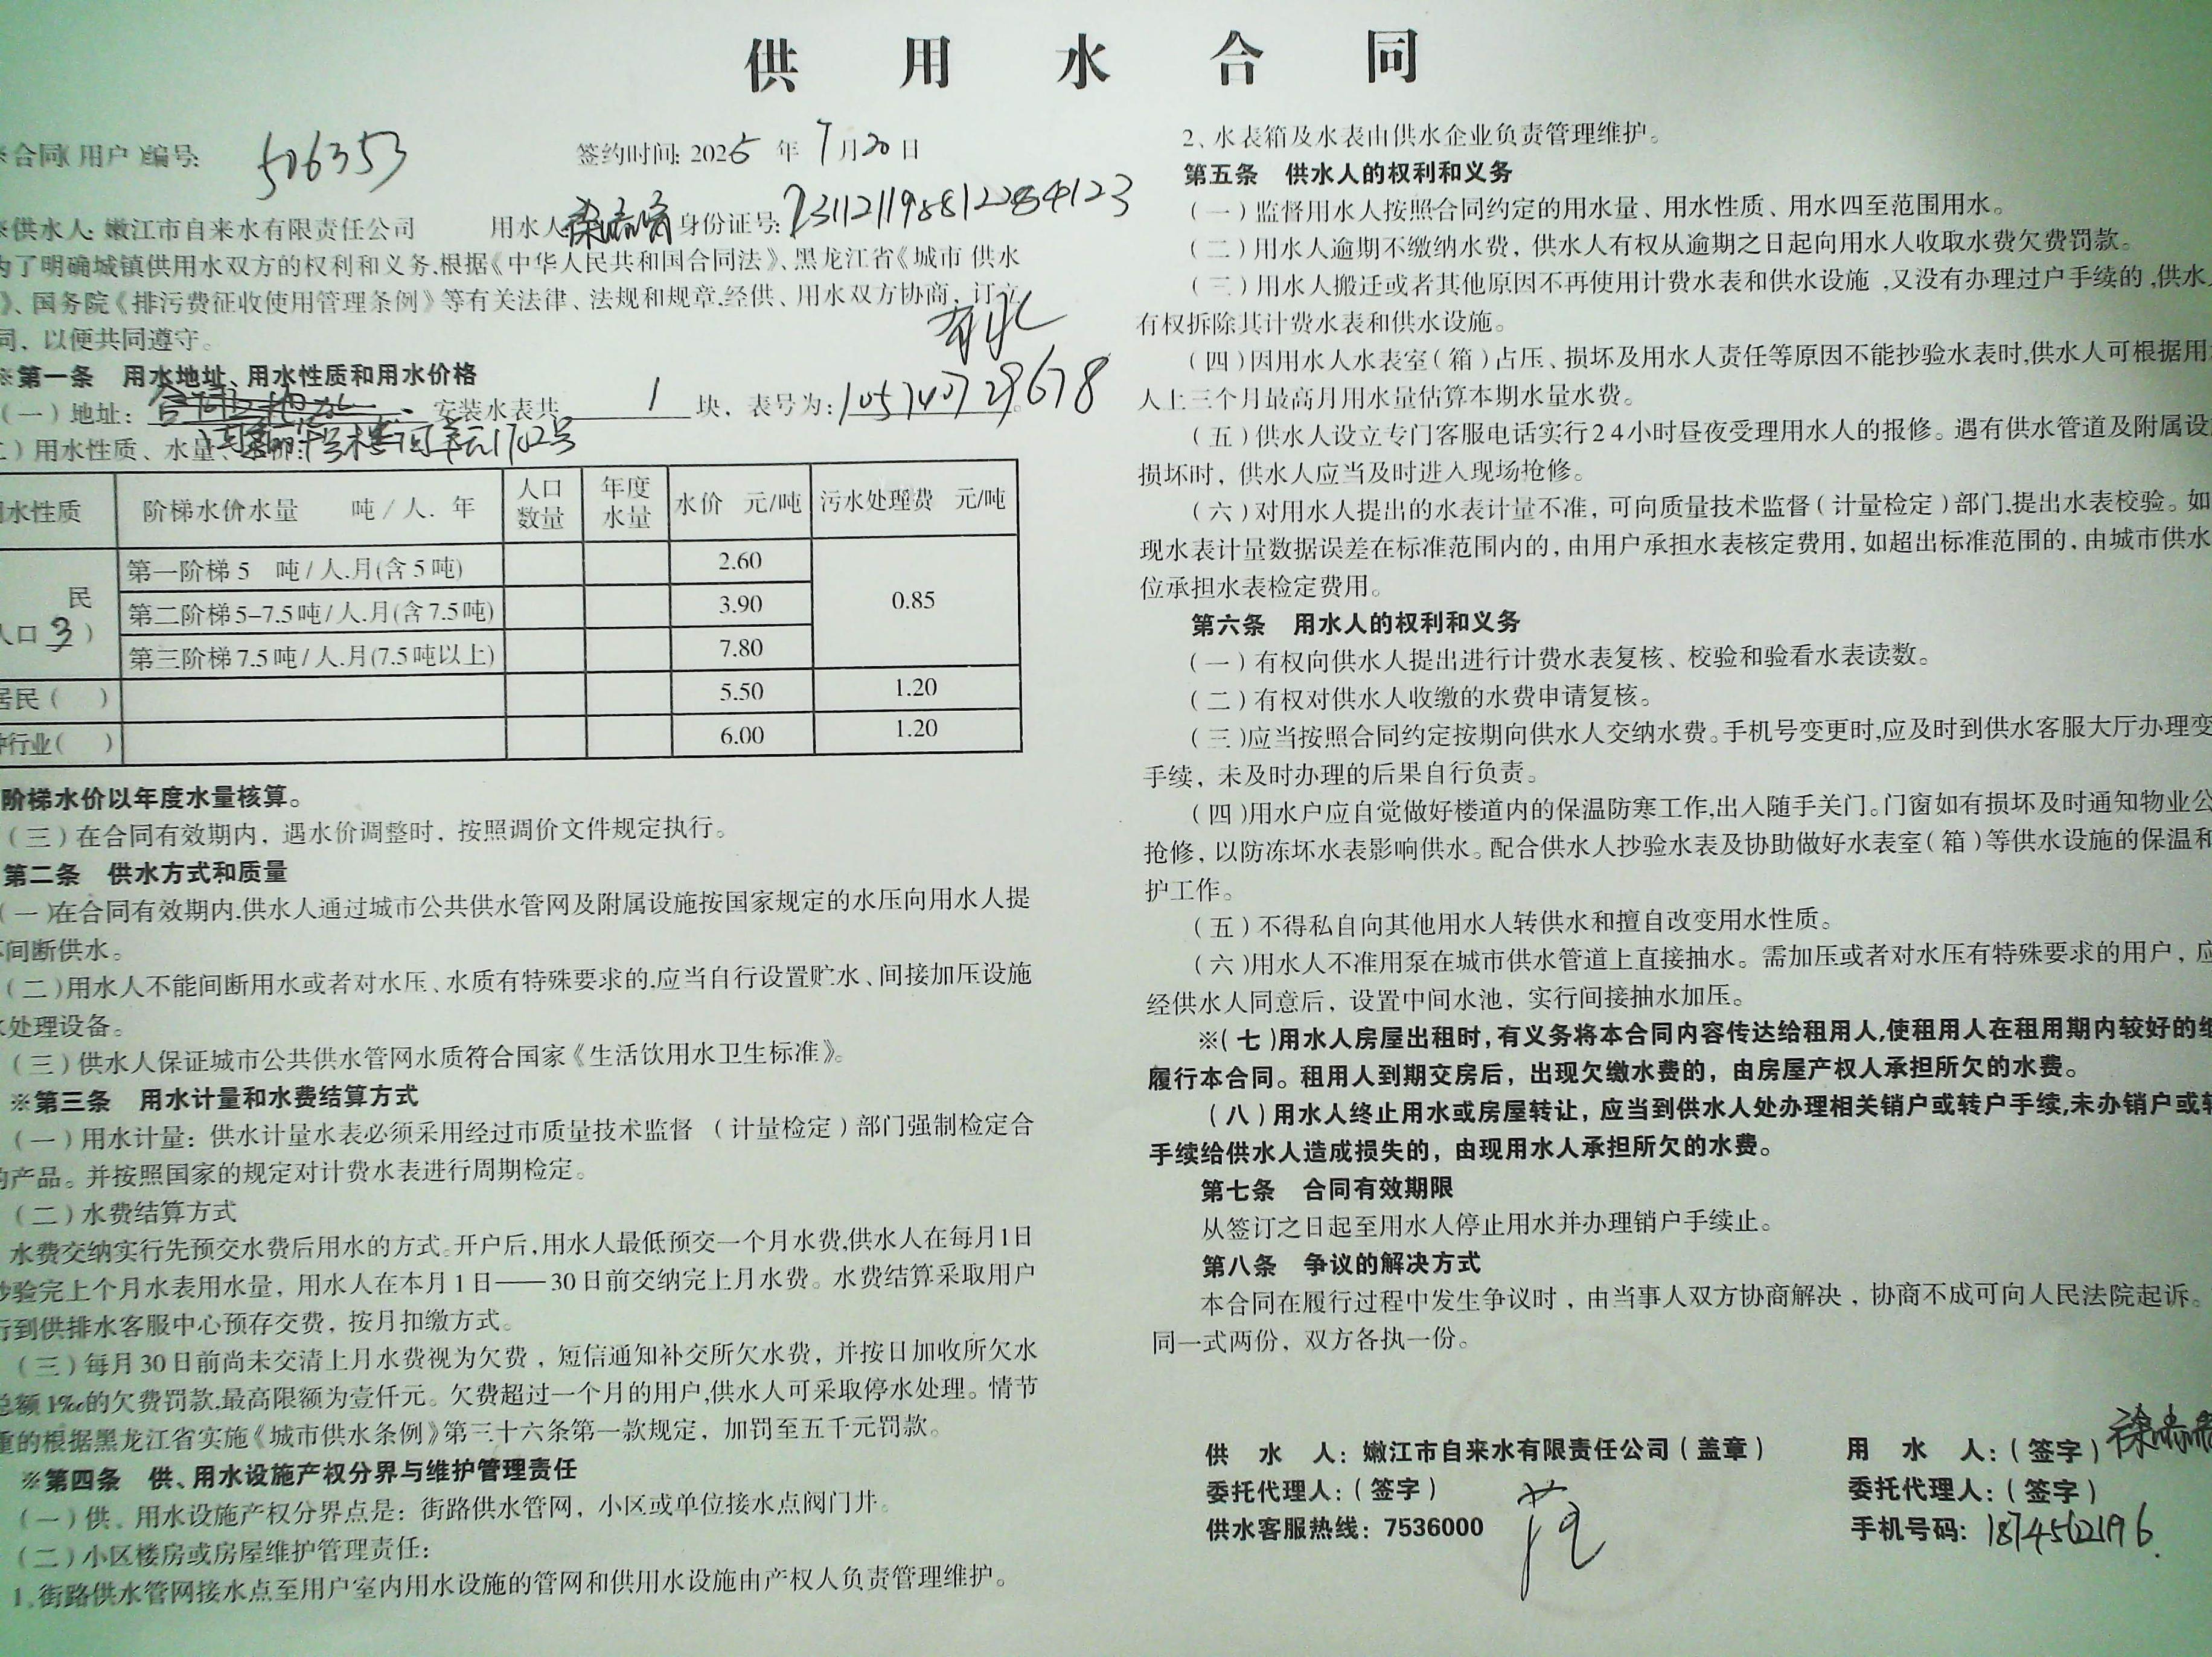 供用水合同
合同(用户)编号: 506353 签约时间: 2025年7月20日
供水人: 嫩江市自来水有限责任公司 用水人: 身份证号:
为了明确城镇供用水双方的权利和义务,根据《中华人民共和国合同法》、黑龙江省《城市 供水
》、国务院《排污费征收使用管理条例》等有关法律、法规和规章,经供、用水双方协商, 订立
同, 以便共同遵守。
※第一条 用水地址、用水性质和用水价格
(一)地址: 安装水表共 1 块, 表号为: 105740729678
)用水性质、水量、
水性质 阶梯水价水量 吨/人. 年 人口数量 年度水量 水价 元/吨 污水处理费 元/吨
民
人口3) 第一阶梯 5 吨/人.月(含5吨) 2.60 0.85
第二阶梯 5-7.5吨/人.月(含7.5吨) 3.90
第三阶梯 7.5吨/人.月(7.5吨以上) 7.80
居民( ) 5.50 1.20
行业( ) 6.00 1.20
阶梯水价以年度水量核算。
(三)在合同有效期内, 遇水价调整时, 按照调价文件规定执行。
第二条 供水方式和质量
(一)在合同有效期内,供水人通过城市公共供水管网及附属设施按国家规定的水压向用水人提
间断供水。
(二)用水人不能间断用水或者对水压、水质有特殊要求的,应当自行设置贮水、间接加压设施
处理设备。
(三)供水人保证城市公共供水管网水质符合国家《生活饮用水卫生标准》。
※第三条 用水计量和水费结算方式
(一)用水计量: 供水计量水表必须采用经过市质量技术监督 (计量检定)部门强制检定合
的产品。并按照国家的规定对计费水表进行周期检定。
(二)水费结算方式
水费交纳实行先预交水费后用水的方式。开户后,用水人最低预交一个月水费,供水人在每月1日
抄验完上个月水表用水量, 用水人在本月1日——30日前交纳完上月水费。水费结算采取用户
行到供排水客服中心预存交费, 按月扣缴方式。
(三)每月30日前尚未交清上月水费视为欠费, 短信通知补交所欠水费, 并按日加收所欠水
总额1‰的欠费罚款,最高限额为壹仟元。欠费超过一个月的用户,供水人可采取停水处理。情节
重的根据黑龙江省实施《城市供水条例》第三十六条第一款规定, 加罚至五千元罚款。
※第四条 供、用水设施产权分界与维护管理责任
(一)供、用水设施产权分界点是: 街路供水管网, 小区或单位接水点阀门井。
(二)小区楼房或房屋维护管理责任:
1、街路供水管网接水点至用户室内用水设施的管网和供用水设施由产权人负责管理维护。
2、水表箱及水表由供水企业负责管理维护。
第五条 供水人的权利和义务
(一)监督用水人按照合同约定的用水量、用水性质、用水四至范围用水。
(二)用水人逾期不缴纳水费, 供水人有权从逾期之日起向用水人收取水费欠费罚款。
(三)用水人搬迁或者其他原因不再使用计费水表和供水设施 ,又没有办理过户手续的,供水人
有权拆除其计费水表和供水设施。
(四)因用水人水表室(箱)占压、损坏及用水人责任等原因不能抄验水表时,供水人可根据用水
人上三个月最高月用水量估算本期水量水费。
(五)供水人设立专门客服电话实行24小时昼夜受理用水人的报修。遇有供水管道及附属设
损坏时, 供水人应当及时进入现场抢修。
(六)对用水人提出的水表计量不准, 可向质量技术监督(计量检定)部门,提出水表校验。如
现水表计量数据误差在标准范围内的, 由用户承担水表核定费用, 如超出标准范围的, 由城市供水
位承担水表检定费用。
第六条 用水人的权利和义务
(一)有权向供水人提出进行计费水表复核、校验和验看水表读数。
(二)有权对供水人收缴的水费申请复核。
(三)应当按照合同约定按期向供水人交纳水费。手机号变更时,应及时到供水客服大厅办理变
手续, 未及时办理的后果自行负责。
(四)用水户应自觉做好楼道内的保温防寒工作,出入随手关门。门窗如有损坏及时通知物业公
抢修, 以防冻坏水表影响供水。配合供水人抄验水表及协助做好水表室(箱)等供水设施的保温和
护工作。
(五)不得私自向其他用水人转供水和擅自改变用水性质。
(六)用水人不准用泵在城市供水管道上直接抽水。需加压或者对水压有特殊要求的用户, 应
经供水人同意后, 设置中间水池, 实行间接抽水加压。
※(七)用水人房屋出租时,有义务将本合同内容传达给租用人,使租用人在租用期内较好的继
履行本合同。租用人到期交房后, 出现欠缴水费的, 由房屋产权人承担所欠的水费。
(八)用水人终止用水或房屋转让, 应当到供水人处办理相关销户或转户手续,未办销户或转
手续给供水人造成损失的, 由现用水人承担所欠的水费。
第七条 合同有效期限
从签订之日起至用水人停止用水并办理销户手续止。
第八条 争议的解决方式
本合同在履行过程中发生争议时, 由当事人双方协商解决, 协商不成可向人民法院起诉。
同一式两份, 双方各执一份。
供 水 人: 嫩江市自来水有限责任公司(盖章) 用 水 人: (签字)
委托代理人: (签字) 委托代理人: (签字)
供水客服热线: 7536000 手机号码: 18745622196